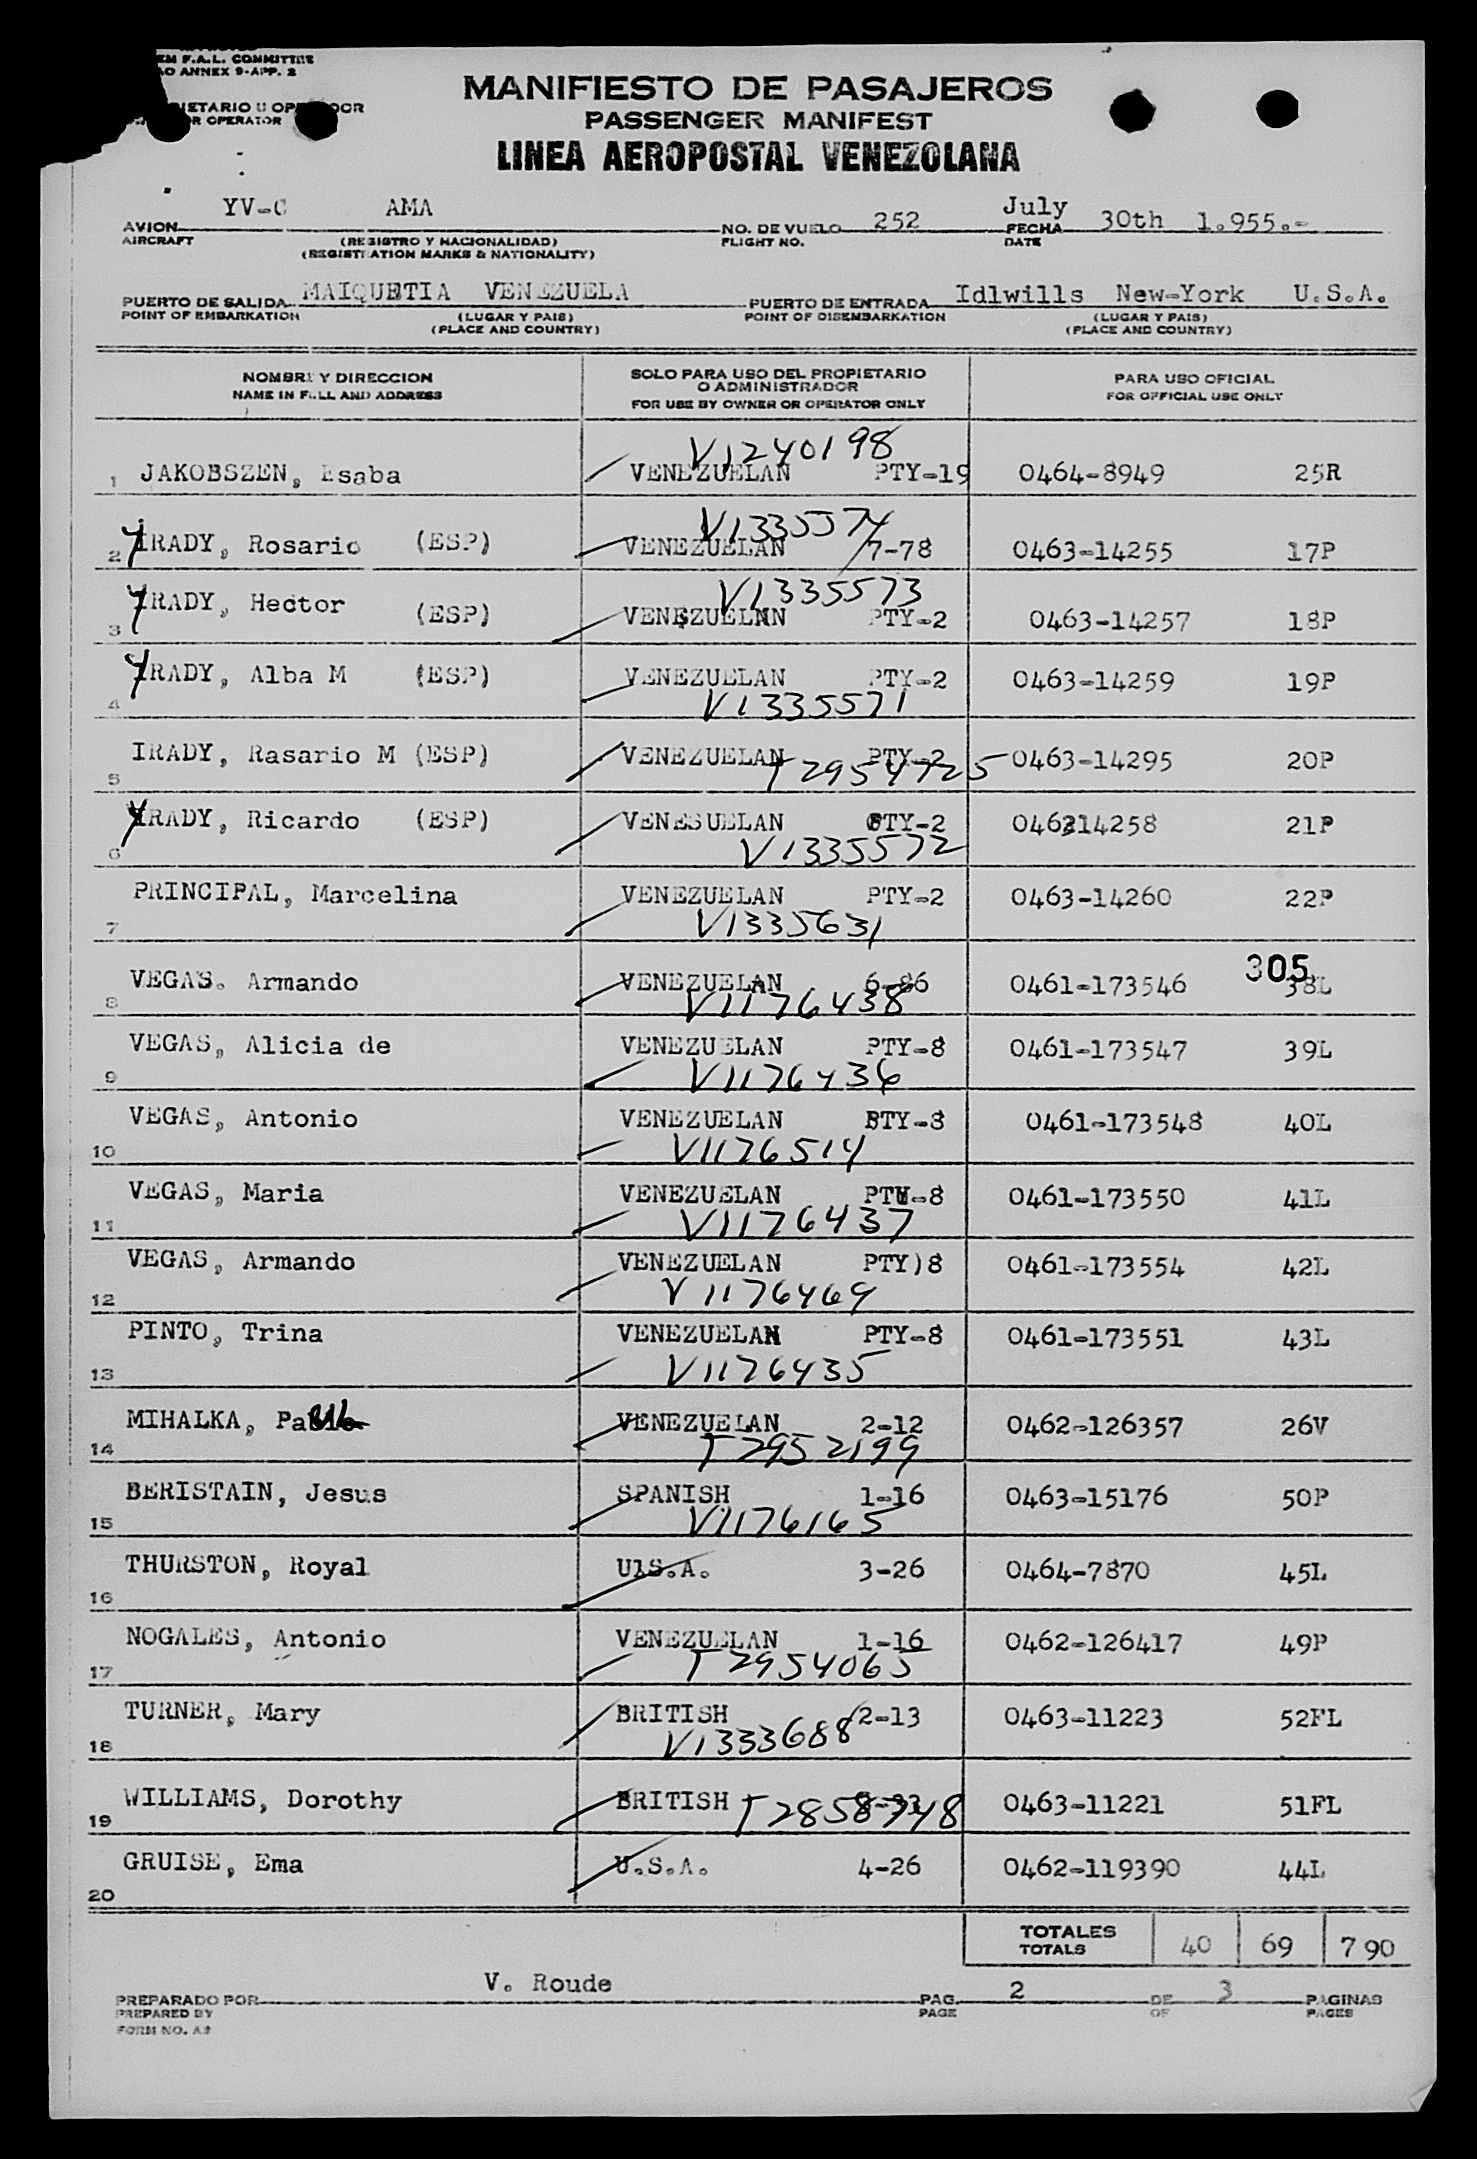 EM F.A.L. COMMITTEE
AO ANNEX 9-APP. 2
IETARIO U OPERADOR
R OPERATOR
MANIFIESTO DE PASAJEROS
PASSENGER MANIFEST
LINEA AEROPOSTAL VENEZOLANA
AVION YV-C AMA NO. DE VUELO 252 July FECHA 30th 1.955.-
AIRCRAFT (REGISTRO Y NACIONALIDAD) FLIGHT NO. DATE
(REGISTRATION MARKS & NATIONALITY)
PUERTO DE SALIDA MAIQUETIA VENEZUELA PUERTO DE ENTRADA Idlwills New-York U.S.A.
POINT OF EMBARKATION (LUGAR Y PAIS) POINT OF DISEMBARKATION (LUGAR Y PAIS)
(PLACE AND COUNTRY) (PLACE AND COUNTRY)
NOMBRE Y DIRECCION SOLO PARA USO DEL PROPIETARIO PARA USO OFICIAL
O ADMINISTRADOR
NAME IN FULL AND ADDRESS FOR USE BY OWNER OR OPERATOR ONLY FOR OFFICIAL USE ONLY
V1240198
1 JAKOBSZEN, Esaba VENEZUELAN PTY-19 0464-8949 25R
V1335574
2 YRADY, Rosario (ESP) VENEZUELAN 7-78 0463-14255 17P
V1335573
3 YRADY, Hector (ESP) VENEZUELAN PTY-2 0463-14257 18P
4 YRADY, Alba M (ESP) VENEZUELAN PTY-2 0463-14259 19P
V1335571
5 IRADY, Rasario M (ESP) VENEZUELAN PTY-2 0463-14295 20P
T2954725
6 YRADY, Ricardo (ESP) VENESUELAN PTY-2 0463214258 21P
V1335572
7 PRINCIPAL, Marcelina VENEZUELAN PTY-2 0463-14260 22P
V1335631
305
8 VEGAS. Armando VENEZUELAN 6-86 0461-173546 38L
V1176438
9 VEGAS, Alicia de VENEZUELAN PTY-8 0461-173547 39L
V1176436
10 VEGAS, Antonio VENEZUELAN PTY-8 0461-173548 40L
V1176514
11 VEGAS, Maria VENEZUELAN PTY-8 0461-173550 41L
V1176437
12 VEGAS, Armando VENEZUELAN PTY)8 0461-173554 42L
V1176469
13 PINTO, Trina VENEZUELAN PTY-8 0461-173551 43L
V1176435
14 MIHALKA, Paul VENEZUELAN 2-12 0462-126357 26V
T2952199
15 BERISTAIN, Jesus SPANISH 1-16 0463-15176 50P
V1176165
16 THURSTON, Royal U1S.A. 3-26 0464-7870 45L
17 NOGALES, Antonio VENEZUELAN 1-16 0462-126417 49P
T2954065
18 TURNER, Mary BRITISH 2-13 0463-11223 52FL
V1333688
19 WILLIAMS, Dorothy BRITISH 0463-11221 51FL
T2858748
20 GRUISE, Ema U.S.A. 4-26 0462-119390 44L
TOTALES 40 69 790
TOTALS
V. Roude
PREPARADO POR PAG. 2 DE 3 PAGINAS
PREPARED BY PAGE OF PAGES
FORM NO. A2